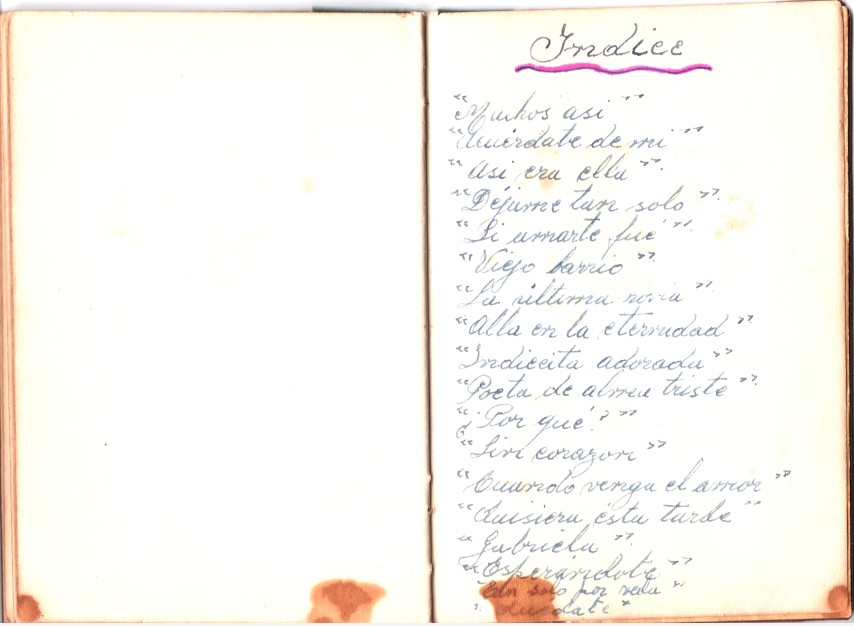 Indice
"Muchos asi"
"Acuérdate de mi"
"Asi era ella".
"Déjame tan solo".
"Si amarte fué".
"Viejo barrio".
"La última novia".
"Alla en la eternidad".
"Indiecita adorada"
"Poeta de alma triste".
"¿Por qué?"
"Sin corazon"
"Cuando venga el amor"
"Quisiera ésta tarde"
"Gabriela".
"Esperándote"
solo por
"Quedate"